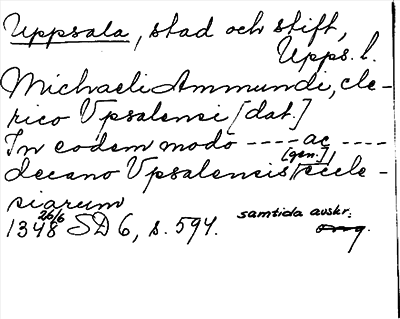 Uppsala, stad och stift,
Upps. l.
Michaeli Ammundi, cle-
rico Vpsalensi [dat.]
In eodem modo ---- ac ----
decano Vpsalensis [gen.] eccle-
siarum
1348 26/6 SD 6, s. 594. samtida avskr.
orig.